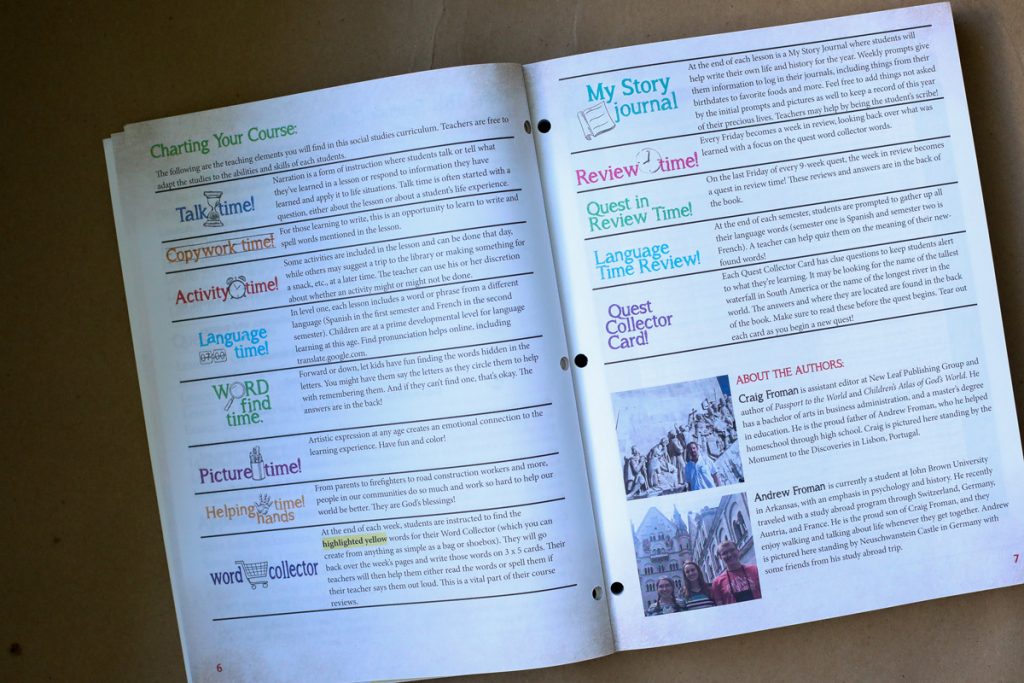 Charting Your Course:
The following are the teaching elements you will find in this social studies curriculum. Teachers are free to
adapt the studies to the abilities and skills of each student.
Talk time!
Narration is a form of instruction where students talk or tell what
they've learned in a lesson or respond to information they have
learned and apply it to life situations. Talk time is often started with a
question, either about the lesson or about a student's life experience.
Copywork time!
For those learning to write, this is an opportunity to learn to write and
spell words mentioned in the lesson.
Activity time!
Some activities are included in the lesson and can be done that day,
while others may suggest a trip to the library or making something for
a snack, etc., at a later time. The teacher can use his or her discretion
about whether an activity might or might not be done.
Language
time!
07:00
In level one, each lesson includes a word or phrase from a different
language (Spanish in the first semester and French in the second
semester). Children are at a prime developmental level for language
learning at this age. Find pronunciation helps online, including
translate.google.com.
WORD
find
time.
Forward or down, let kids have fun finding the words hidden in the
letters. You might have them say the letters as they circle them to help
with remembering them. And if they can't find one, that's okay. The
answers are in the back!
Picture time!
Artistic expression at any age creates an emotional connection to the
learning experience. Have fun and color!
Helping hands time!
From parents to firefighters to road construction workers and more,
people in our communities do so much and work so hard to help our
world be better. They are God's blessings!
word collector
At the end of each week, students are instructed to find the
highlighted yellow words for their Word Collector (which you can
create from anything as simple as a bag or shoebox). They will go
back over the week's pages and write those words on 3 x 5 cards. Their
teachers will then help them either read the words or spell them if
their teacher says them out loud. This is a vital part of their course
reviews.
6
My Story
journal
At the end of each lesson is a My Story Journal where students will
help write their own life and history for the year. Weekly prompts give
them information to log in their journals, including things from their
birthdates to favorite foods and more. Feel free to add things not asked
by the initial prompts and pictures as well to keep a record of this year
of their precious lives. Teachers may help by being the student's scribe!
Review time!
Every Friday becomes a week in review, looking back over what was
learned with a focus on the quest word collector words.
Quest in
Review Time!
On the last Friday of every 9-week quest, the week in review becomes
a quest in review time! These reviews and answers are in the back of
the book.
Language
Time Review!
At the end of each semester, students are prompted to gather up all
their language words (semester one is Spanish and semester two is
French). A teacher can help quiz them on the meaning of their new-
found words!
Quest
Collector
Card!
Each Quest Collector Card has clue questions to keep students alert
to what they're learning. It may be looking for the name of the tallest
waterfall in South America or the name of the longest river in the
world. The answers and where they are located are found in the back
of the book. Make sure to read these before the quest begins. Tear out
each card as you begin a new quest!
ABOUT THE AUTHORS:
Craig Froman is assistant editor at New Leaf Publishing Group and
author of Passport to the World and Children's Atlas of God's World. He
has a bachelor of arts in business administration, and a master's degree
in education. He is the proud father of Andrew Froman, who he helped
homeschool through high school. Craig is pictured here standing by the
Monument to the Discoveries in Lisbon, Portugal.
Andrew Froman is currently a student at John Brown University
in Arkansas, with an emphasis in psychology and history. He recently
traveled with a study abroad program through Switzerland, Germany,
Austria, and France. He is the proud son of Craig Froman, and they
enjoy walking and talking about life whenever they get together. Andrew
is pictured here standing by Neuschwanstein Castle in Germany with
some friends from his study abroad trip.
7